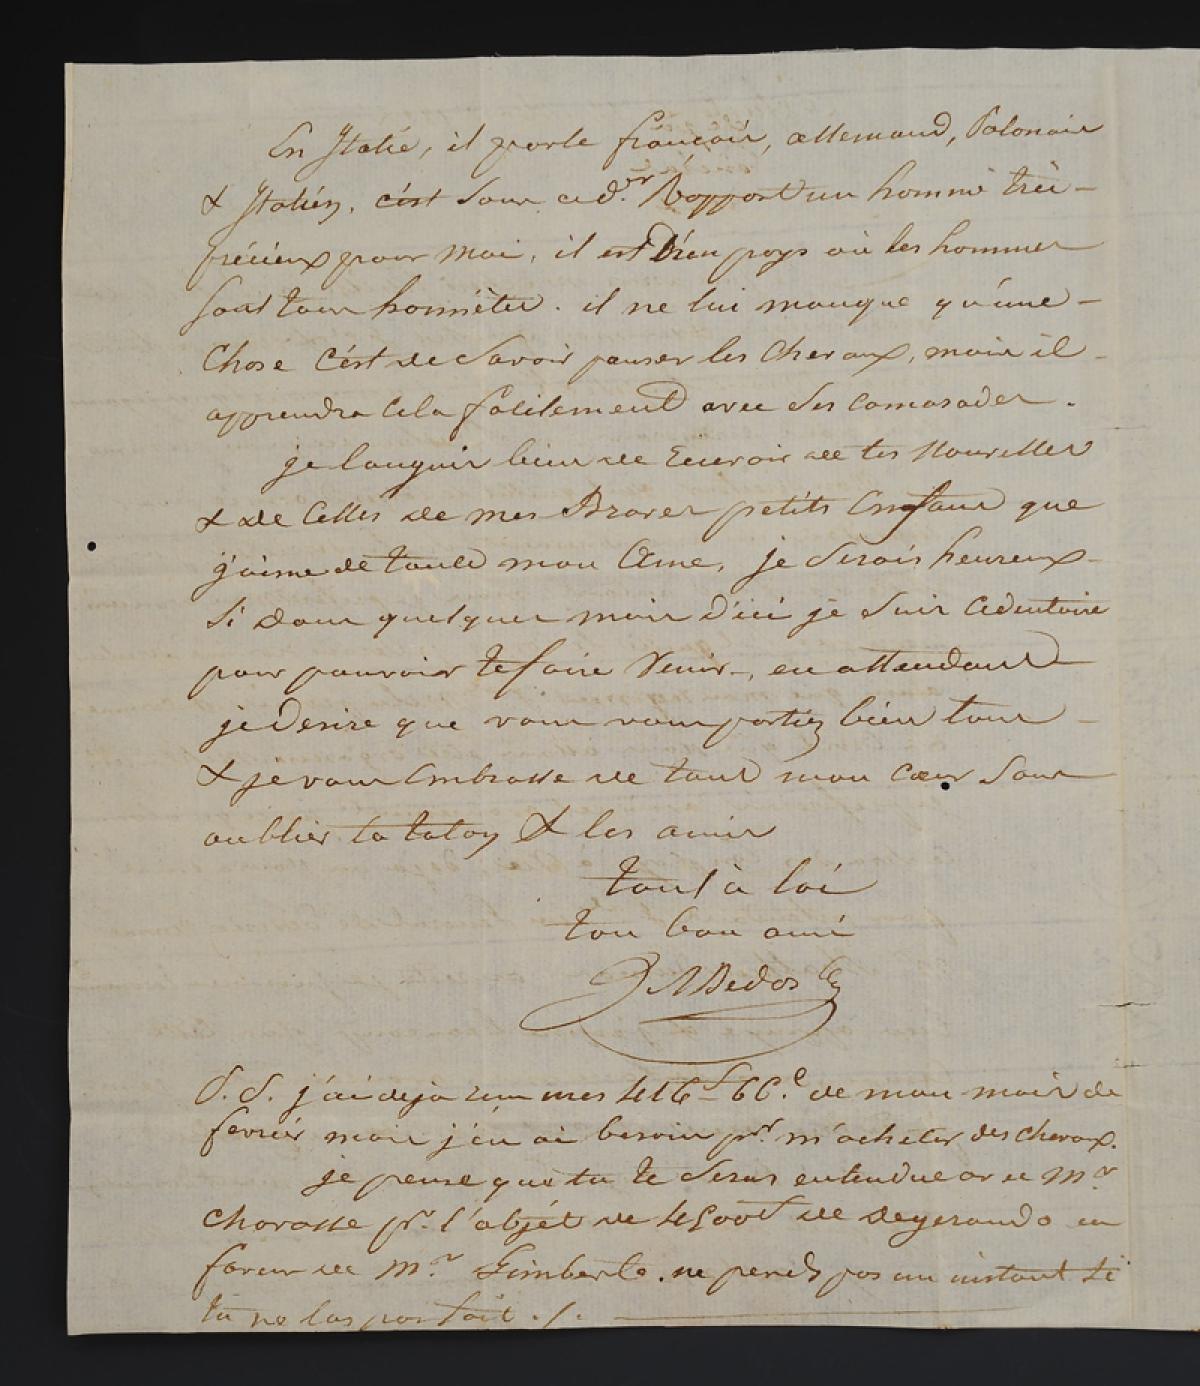 En Italie, il parle français, allemand, Polonais
& Italien, c'est sous ce d.er Rapport un homme très –
précieux pour moi, il est d'un pays où les hommes
sont tous honnêtes. il ne lui manque qu'une –
Chose c'est de savoir panser les chevaux, mais il
apprendra cela facilement avec ses camarades.
je languis bien de recevoir de tes Nouvelles
& de Celles de mes Braves petits Enfans que
j'aime de toute mon Ame, je serois heureux
si dans quelques mois d'ici je suis cedentaire
pour pouvoir te faire Venir –, en attendant
je desire que vous vous portiez bien tous –
& je vous Embrasse de tout mon cœur sans
oublier la tatoy & les amis
tout à toi
ton bon ami
Bedos
P. S. j'ai deja reçu mes 416 f 66 c. de mon mois de
fevrier mais j'en ai besoin pr. m'acheter des chevaux.
je pense que tu te seras entendue avec Mr
Chavasse pr. l'objet de 1500 f de degerando en
faveur de Mr. Gimberte. ne perds pas un instant si
tu ne l'as pas fait ./.